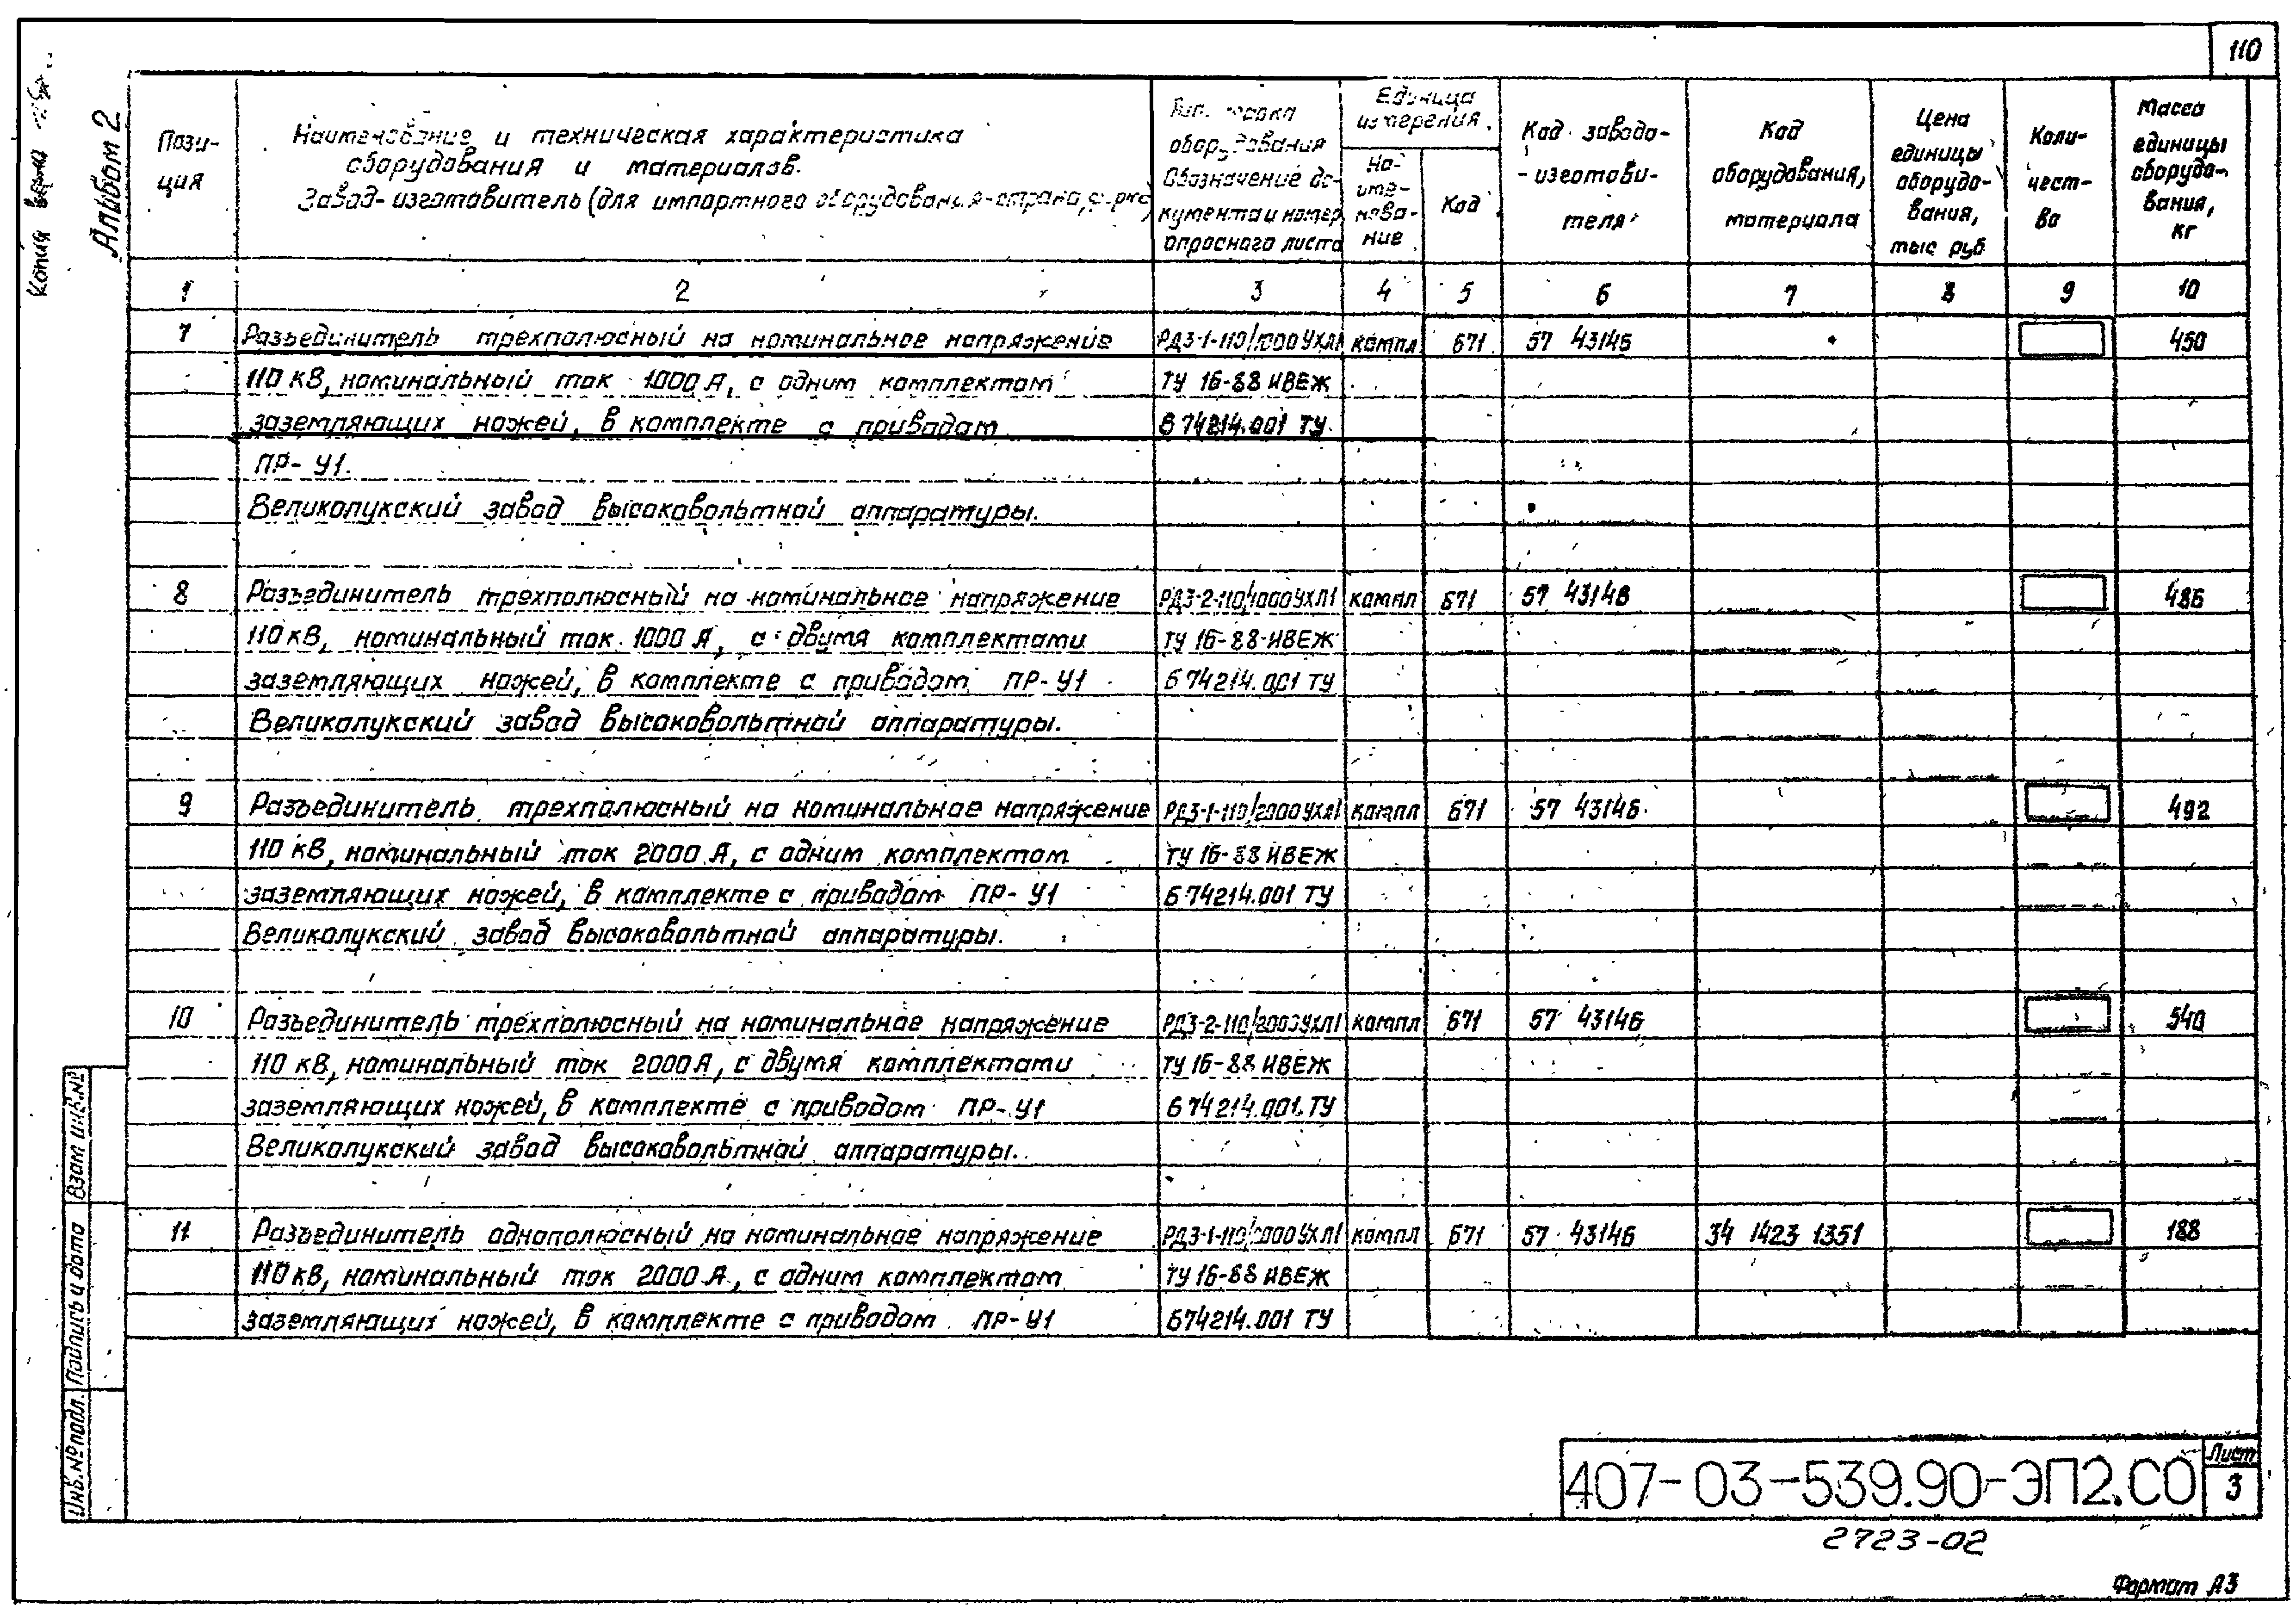 110
Копия верна
Альбом 2
Пози-
ция
Наименование и техническая характеристика
оборудования и материалов.
Завод-изготовитель (для импортного оборудования-страна, фирма)
Тип, марка
оборудования
Обозначение до-
кумента и номер
опросного листа
Единица
измерения
На-
име-
нова-
ние
Код
Код завода-
-изготови-
теля
Код
оборудования,
материала
Цена
единицы
оборудо-
вания,
тыс руб
Коли-
чест-
во
Масса
единицы
оборудо-
вания,
кг
1 2 3 4 5 6 7 8 9 10
7 Разъединитель трехполюсный на номинальное напряжение РДЗ-1-110/1000УХЛ1 компл 671 57 43146 450
110 кВ, номинальный ток 1000 А, с одним комплектом ТУ 16-88 ИВЕЖ
заземляющих ножей, в комплекте с приводом 674214.001 ТУ
ПР-У1.
Великолукский завод высоковольтной аппаратуры.
8 Разъединитель трехполюсный на номинальное напряжение РДЗ-2-110/1000УХЛ1 компл 671 57 43146 486
110 кВ, номинальный ток 1000 А, с двумя комплектами ТУ 16-88 ИВЕЖ
заземляющих ножей, в комплекте с приводом ПР-У1 674214.001 ТУ
Великолукский завод высоковольтной аппаратуры.
9 Разъединитель трехполюсный на номинальное напряжение РДЗ-1-110/2000УХЛ1 компл 671 57 43146 492
110 кВ, номинальный ток 2000 А, с одним комплектом ТУ 16-88 ИВЕЖ
заземляющих ножей, в комплекте с приводом ПР-У1 674214.001 ТУ
Великолукский завод высоковольтной аппаратуры.
10 Разъединитель трехполюсный на номинальное напряжение РДЗ-2-110/2000УХЛ1 компл 671 57 43146 540
110 кВ, номинальный ток 2000 А, с двумя комплектами ТУ 16-88 ИВЕЖ
заземляющих ножей, в комплекте с приводом ПР-У1 674214.001 ТУ
Великолукский завод высоковольтной аппаратуры.
11 Разъединитель однополюсный на номинальное напряжение РДЗ-1-110/2000УХЛ1 компл 671 57 43146 34 1423 1351 188
110 кВ, номинальный ток 2000 А, с одним комплектом ТУ 16-88 ИВЕЖ
заземляющих ножей, в комплекте с приводом ПР-У1 674214.001 ТУ
Взам инв.№
Подпись и дата
Инв.№ подл.
407-03-539.90-ЭП2.СО
Лист
3
2723-02
Формат А3